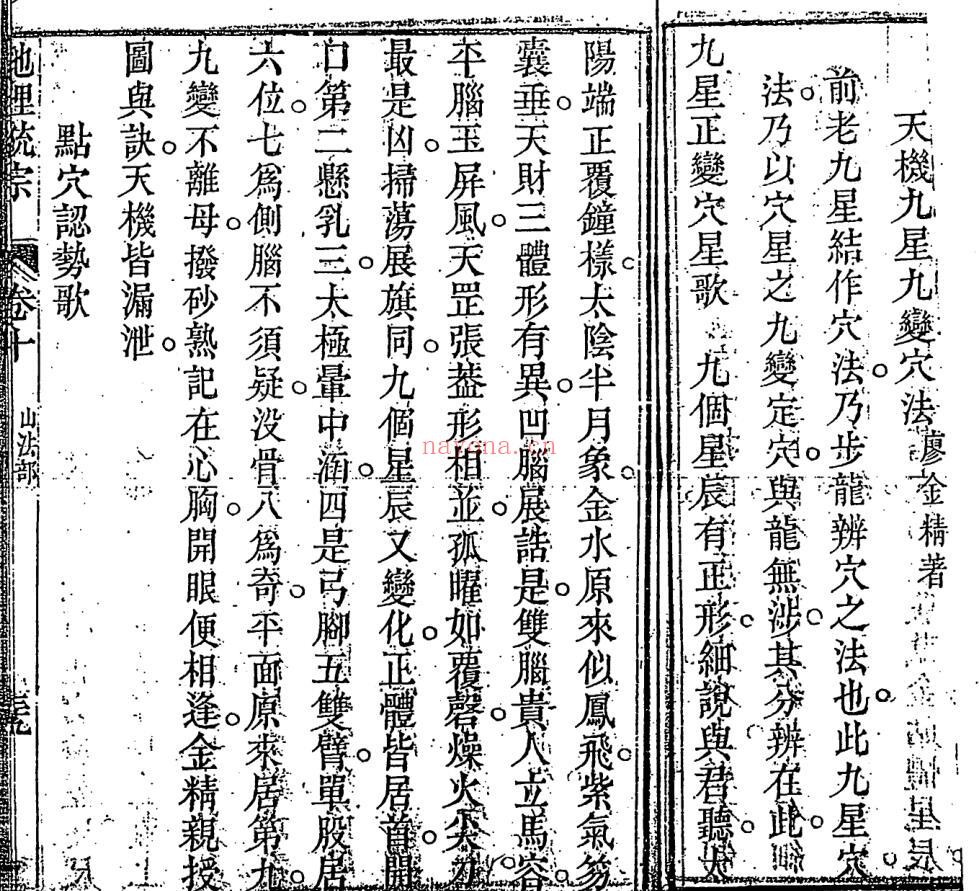 天機九星九變穴法 廖金精著
前老九星結作穴法乃步龍辨穴之法也此九星穴
法乃以穴星之九變定穴與龍無涉其分辨在此
九星正變穴星歌 九個星辰有正形細說與君聽太
陽端正覆鐘樣太陰半月象金水原來似鳳飛紫氣笏
囊垂天財三體形有異凹腦展誥是雙腦貴人立馬容
平腦玉屏風天罡張蓋形相並孤曜如覆磬燥火尖
最是凶掃蕩展旗同九個星辰又變化正體皆居首開
口第二懸乳三太極暈中涵四是弓腳五雙臂單股居
六位七為側腦不須疑没骨八為奇平面原來居第九
九變不離母撥砂熟記在心胸開眼便相逢金精親授
圖與訣天機皆漏泄
點穴認勢歌
地理統宗 卷十 山法部
nayona.cn